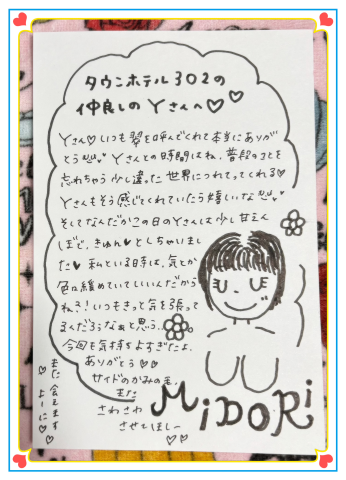 タウンホテル302の
仲良しのYさんへ♡♡
Yさん♡いつも翠を呼んでくれて本当にありが
とう Yさんとの時間はね、普段のことを
忘れちゃう少し違った世界につれてってくれる♡
Yさんもそう感じてくれていたら嬉しいな
そしてなんだかこの日のYさんは少し甘えん
ぼで、きゅん♡としちゃいまし
た♡ 私といる時は、気とか
色々緩めていていいんだから
ね?!いつもきっと気を張って
るんだろうなぁと思う。
今回も気持ちよすぎたよ。
ありがとう♡♡
サイドのかみの毛、
また
さわさわ
させてほしー
♡♡
また会えます
よーに♡
MiDORi